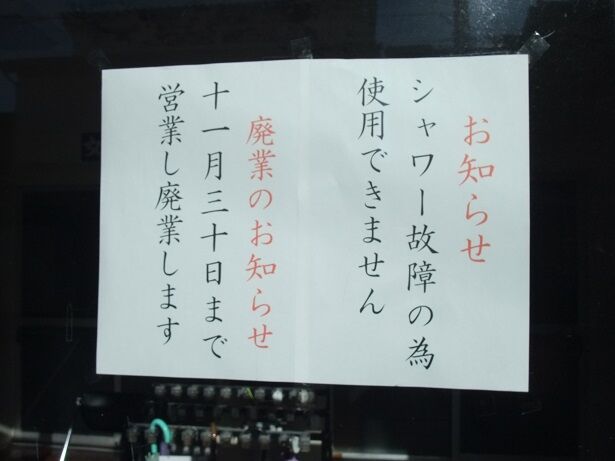 お知らせ
シャワー故障の為
使用できません
廃業のお知らせ
十一月三十日まで
営業し廃業します